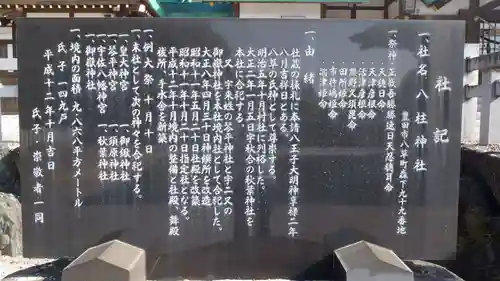 社記
一、社名 八柱神社
豊田市八草町森下九十九番地
一、祭神 正哉吾勝勝速日天忍穂耳命
天穂日命
天津彦根命
活津彦根命
熊野久須毘命
田所姫命
市杵嶋姫命
湍津姫命
一、由緒
社蔵の棟札に奉請八王子大明神享禄二年
八月吉祥日とある。
八草の氏神として尊崇する。
明治五年十月村社に列格した。
大正二年十月五日字秋合の秋葉神社を
本社に合祀。
又、字来姓の谷弁神社と字二又の
御嶽神社を本社境内社として合祀した。
大正八年三月三十日神饌所を改造
昭和十一年五月二十日社殿を改築
昭和二十年十月十日指定社となる。
平成十二年十月境内の整備と社殿、舞殿
社務所、手水舎を新築
一、例大祭 十月十日
一、末社として次の神々を合祀する。
一、皇大神宮 一、御鍬神社
一、谷弁神宮 一、須佐神社
一、宇佐八幡神宮 一、秋葉神社
一、御嶽神社
一、境内の面積 九・八六八平方メートル
氏子 一四九戸
平成十二年十月吉日
氏子・崇敬者一同